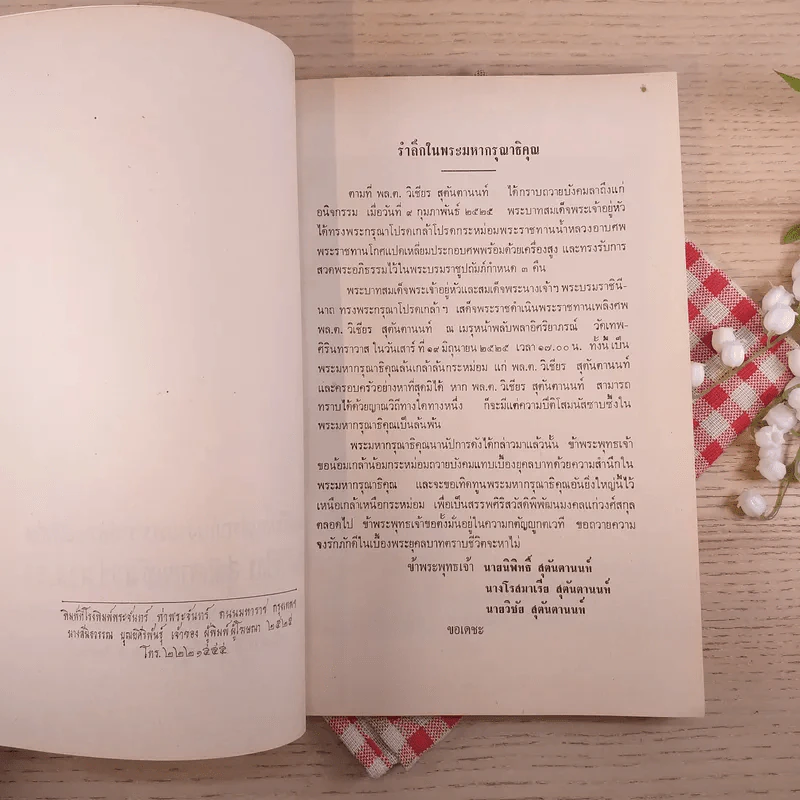 พิมพ์ที่โรงพิมพ์พระจันทร์ ท่าพระจันทร์ ถนนมหาราช กรุงเทพฯ
นางสนิธวรรณ บุณยศิริพันธุ์ เจ้าของ ผู้พิมพ์ผู้โฆษณา ๒๕๒๕
โทร. ๒๒๒๑๕๕๕
รำลึกในพระมหากรุณาธิคุณ
ตามที่ พล.ต. วิเชียร สุตันตานนท์ ได้กราบถวายบังคมลาถึงแก่
อนิจกรรม เมื่อวันที่ ๙ กุมภาพันธ์ ๒๕๒๕ พระบาทสมเด็จพระเจ้าอยู่หัว
ได้ทรงพระกรุณาโปรดเกล้าโปรดกระหม่อมพระราชทานน้ำหลวงอาบศพ
พระราชทานโกศแปดเหลี่ยมประกอบศพพร้อมด้วยเครื่องสูง และทรงรับการ
สวดพระอภิธรรมไว้ในพระบรมราชูปถัมภ์กำหนด ๓ คืน
พระบาทสมเด็จพระเจ้าอยู่หัวและสมเด็จพระนางเจ้าฯ พระบรมราชินี-
นาถ ทรงพระกรุณาโปรดเกล้าฯ เสด็จพระราชดำเนินพระราชทานเพลิงศพ
พล.ต. วิเชียร สุตันตานนท์ ณ เมรุหน้าพลับพลาอิศริยาภรณ์ วัดเทพ-
ศิรินทราวาส ในวันเสาร์ ที่ ๑๙ มิถุนายน ๒๕๒๕ เวลา ๑๗.๐๐ น. ทั้งนี้ เป็น
พระมหากรุณาธิคุณล้นเกล้าล้นกระหม่อม แก่ พล.ต. วิเชียร สุตันตานนท์
และครอบครัวอย่างหาที่สุดมิได้ หาก พล.ต. วิเชียร สุตันตานนท์ สามารถ
ทราบได้ด้วยญาณวิถีทางใดทางหนึ่ง ก็จะมีแต่ความปีติโสมนัสซาบซึ้งใน
พระมหากรุณาธิคุณเป็นล้นพ้น
พระมหากรุณาธิคุณนานัปการดังได้กล่าวมาแล้วนั้น ข้าพระพุทธเจ้า
ขอน้อมเกล้าน้อมกระหม่อมถวายบังคมแทบเบื้องยุคลบาทด้วยความสำนึกใน
พระมหากรุณาธิคุณ และจะขอเทิดทูนพระมหากรุณาธิคุณอันยิ่งใหญ่นี้ไว้
เหนือเกล้าเหนือกระหม่อม เพื่อเป็นสรรพศิริสวัสดิพิพัฒนมงคลแก่วงศ์สกุล
ตลอดไป ข้าพระพุทธเจ้าขอตั้งมั่นอยู่ในความกตัญญูกตเวที ขอถวายความ
จงรักภักดีในเบื้องพระยุคลบาทตราบชีวิตจะหาไม่
ข้าพระพุทธเจ้า นายนิพิทธิ์ สุตันตานนท์
นางโรสมาเรีย สุตันตานนท์
นายวิชัย สุตันตานนท์
ขอเดชะ